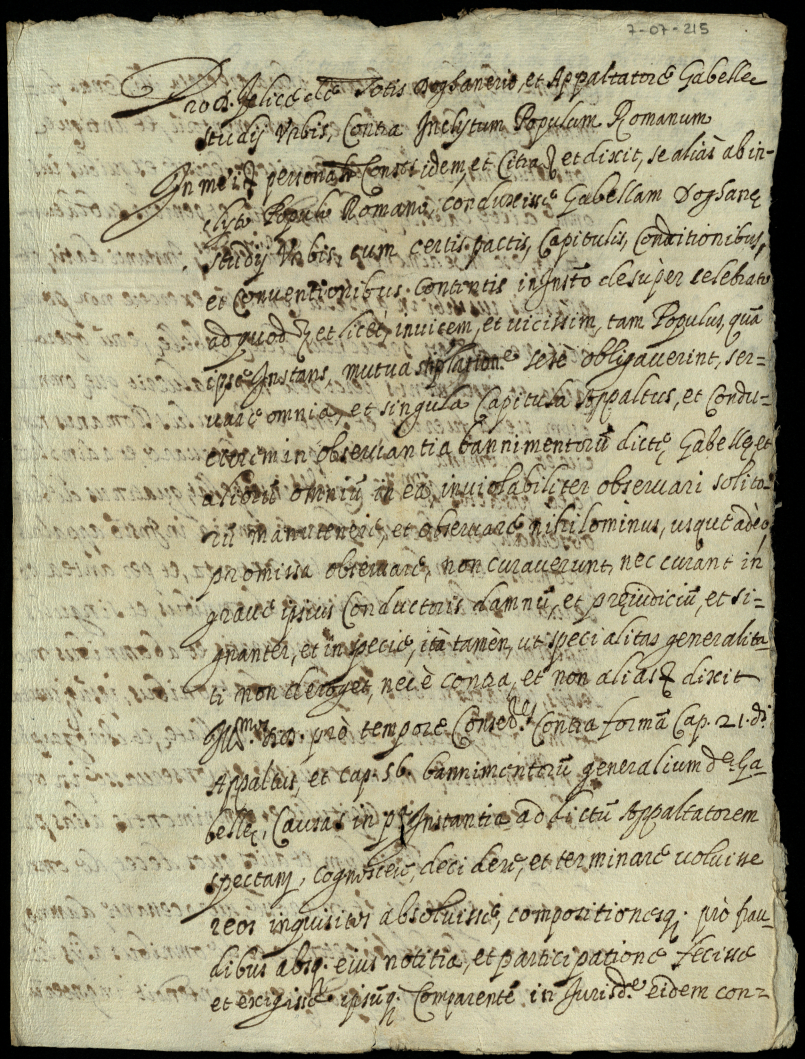 7-07-215
Pro D. Felice de Totis Doghanerio, et Appaltatore Gabelle
studij Urbis, Contra Inclytum Populum Romanum
In mei personal Constus idem, et Citra et dixit, se alias ab in-
clyto Populo Romano, conduxisse Gabellam Doghane
studij Urbis, cum certis pactis, Capitulis, Conditionibus,
et Conventionibus contentis in Insto desuper celebrato
ad quod et licet, invicem, et vicissim, tam Populus, quā
ipse Instans, mutua stiplatione sese obligaverint, ser-
uare omnia, et singula Capitula Appaltus, et Condu-
ctorem in obseruantia bannimentorū dicte Gabelle, et
aliorū omniū in ea inuiolabiliter obseruari solito-
rū manutenere, et obseruare nihilominus, usque adeo
promissa obseruare, non curauerunt, nec curant in
graue ipsius Conductoris damnū, et preiudiciū, et si-
gnanter, et in specie, ita tamen, ut specialitas generalita-
ti non deroget, nec è contra, et non alias dixit
Illmos pro tempore Conserues Contra formā Cap. 21. di
Appaltus, et cap. 56. bannimentorū generalium de Ga-
belle, Causas in pa Instantia ad dictū Appaltatorem
spectam, cognoscere, decidere, et terminare uoluisse
reos inquisitos absoluisse, compositionesq. pro frau-
dibus absq. eius notitia, et participatione fecisse
et exigisse ipsūq. Comparentē in Jurisde eidem con-